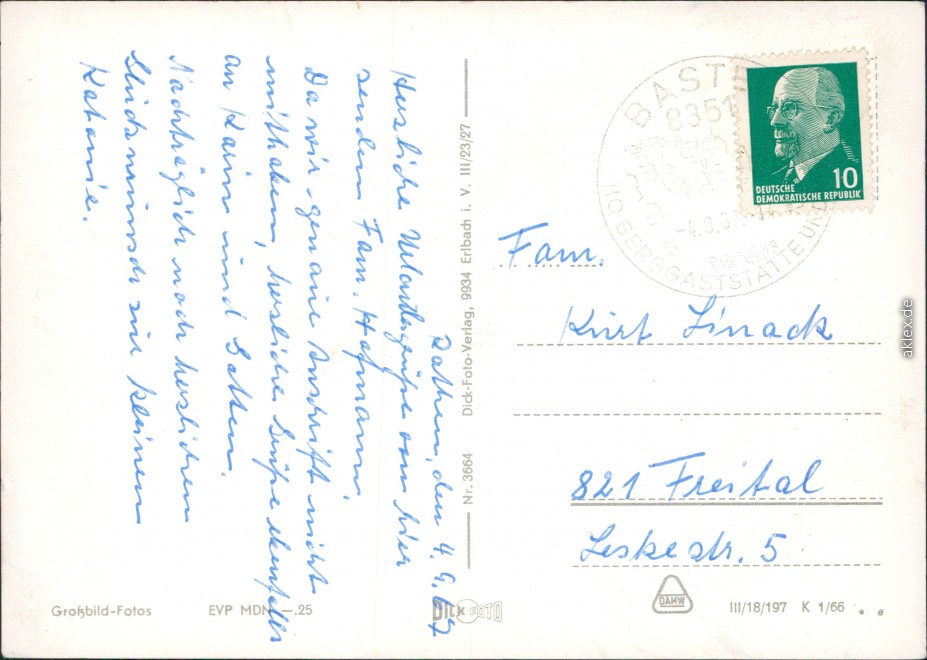 Rathen, den 4.9.67
Herzliche Urlaubsgrüße von hier
senden Fam. Hofmann,
Da wir genaue Anschrift nicht
mithaben, herzliche Grüße ebenfalls
an Karin und Gatten.
Nachträglich noch herzlichen
Glückwunsch zur kleinen
Katamie.
Großbild-Fotos
EVP MDN —.25
Nr. 3664
Dick-Foto-Verlag, 9934 Erlbach i. V. III/23/27
DICK FOTO
BASTEI
8351
-4.9.6
HO BERGGASTSTÄTTE UND
DEUTSCHE
DEMOKRATISCHE REPUBLIK
10
Fam.
Kurt Linack
821 Freital
Leskestr. 5
DAMW
III/18/197 K 1/66
aklex.de